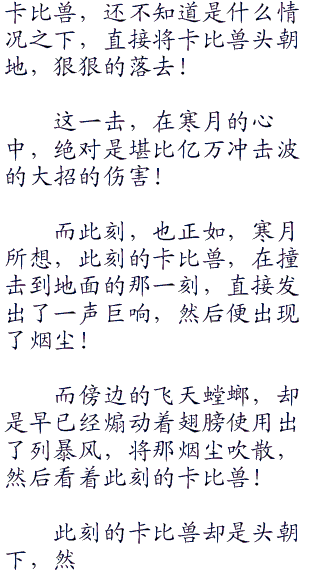 卡比兽，还不知道是什么情
况之下，直接将卡比兽头朝
地，狠狠的落去！
这一击，在寒月的心
中，绝对是堪比亿万冲击波
的大招的伤害！
而此刻，也正如，寒月
所想，此刻的卡比兽，在撞
击到地面的那一刻，直接发
出了一声巨响，然后便出现
了烟尘！
而傍边的飞天螳螂，却
是早已经煽动着翅膀使用出
了列暴风，将那烟尘吹散，
然后看着此刻的卡比兽！
此刻的卡比兽却是头朝
下，然